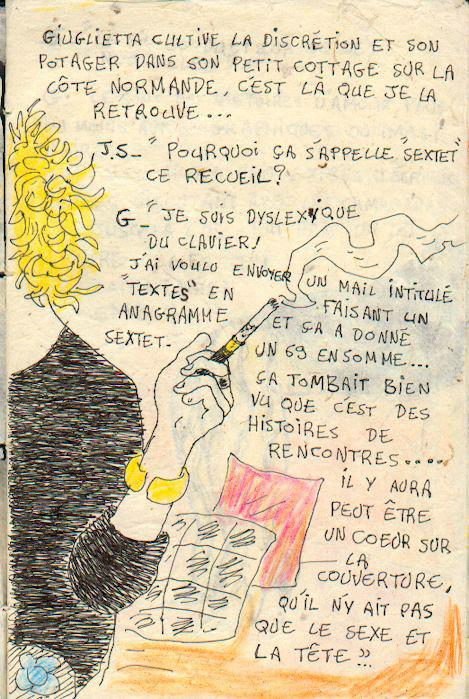 GIUGLIETTA CULTIVE LA DISCRÉTION ET SON
POTAGER DANS SON PETIT COTTAGE SUR LA
CÔTE NORMANDE, C'EST LÀ QUE JE LA
RETROUVE...
J.S_ "POURQUOI ÇA S'APPELLE "SEXTET"
CE RECUEIL?
G_ "JE SUIS DYSLEXIQUE
DU CLAVIER!
J'AI VOULU ENVOYER
UN MAIL INTITULÉ
"TEXTES" EN
FAISANT UN
ANAGRAMME
ET ÇA A DONNÉ
SEXTET_
UN 69 EN SOMME...
ÇA TOMBAIT BIEN
VU QUE C'EST DES
HISTOIRES DE
RENCONTRES....
IL Y AURA
PEUT ÊTRE
UN COEUR SUR
LA
COUVERTURE,
QU'IL N'Y AIT PAS
QUE LE SEXE ET
LA TÊTE"...